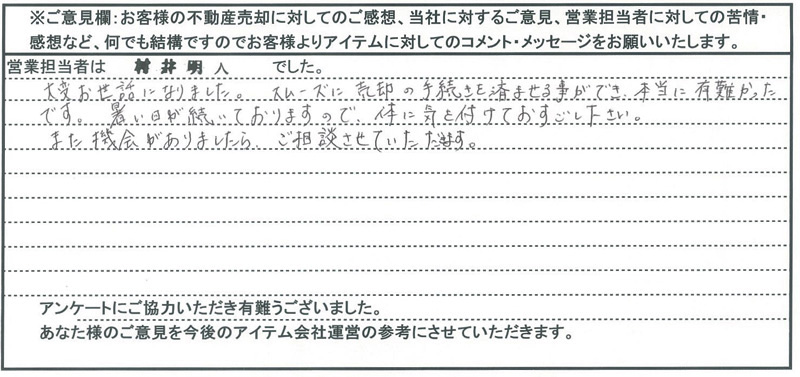 ※ご意見欄：お客様の不動産売却に対してのご感想、当社に対するご意見、営業担当者に対しての苦情・
感想など、何でも結構ですのでお客様よりアイテムに対してのコメント・メッセージをお願いいたします。
営業担当者は 村井明人 でした。
大変お世話になりました。スムーズに売却の手続きを済ませる事ができ、本当に有難かった
です。暑い日が続いておりますので、体に気を付けておすごし下さい。
また機会がありましたら、ご相談させていただきます。
アンケートにご協力いただき有難うございました。
あなた様のご意見を今後のアイテム会社運営の参考にさせていただきます。